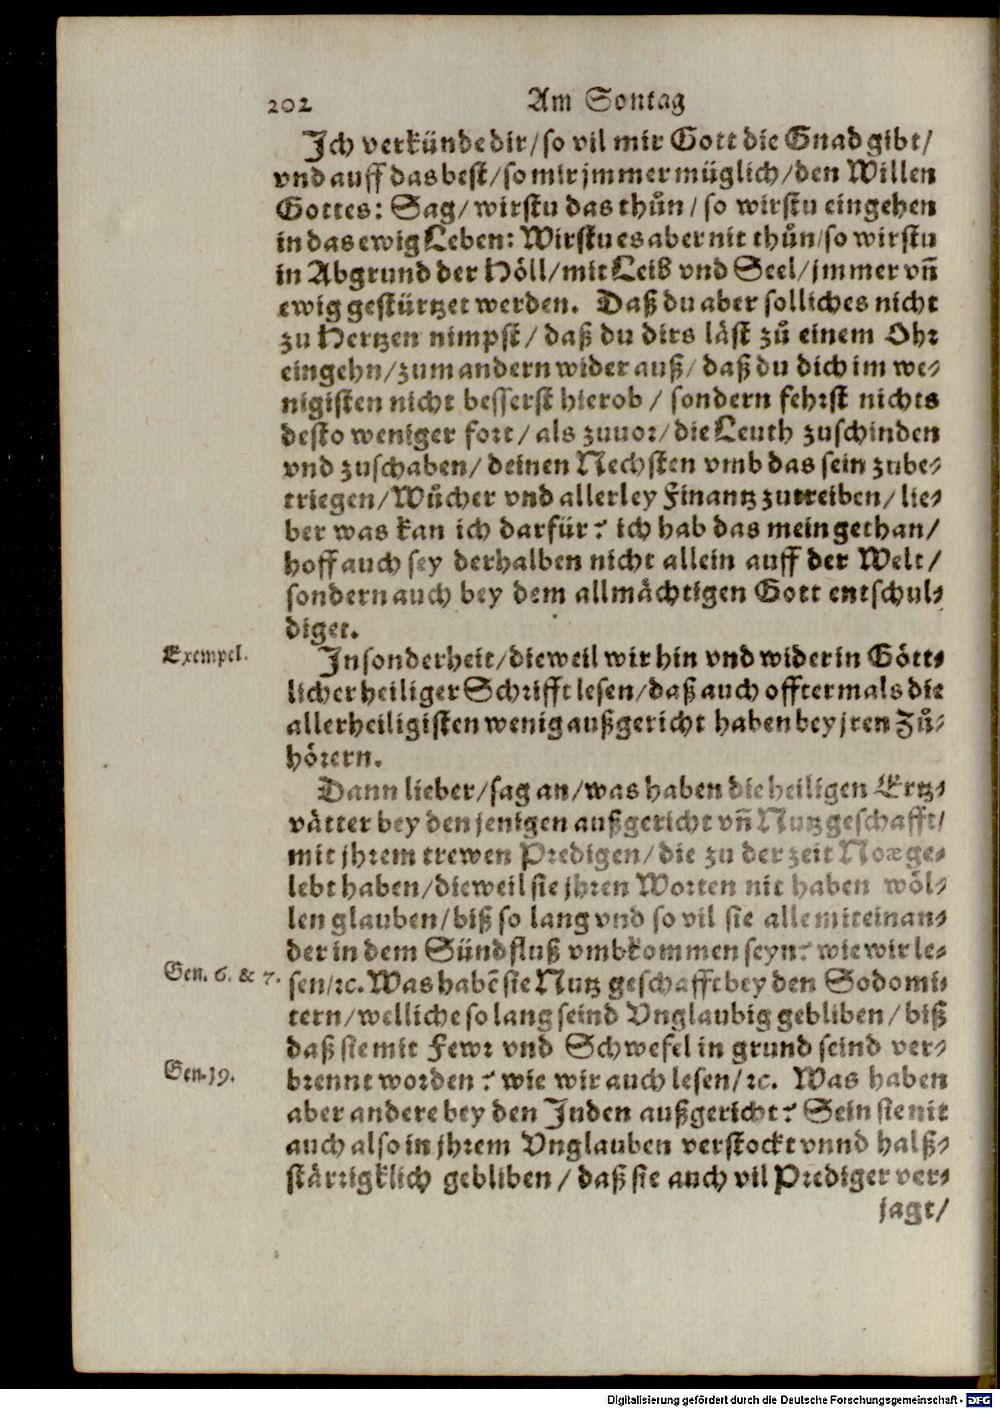 202 Am Sontag
Ich verkünde dir/ so vil mir Gott die Gnad gibt/
vnd auff das best/ so mir jmmer müglich/ den Willen
Gottes: Sag/ wirstu das thůn/ so wirstu eingehen
in das ewig Leben: Wirstu es aber nit thůn/ so wirstu
in Abgrund der Höll/ mit Leib vnd Seel/ jmmer vñ
ewig gestürtzet werden. Daß du aber solliches nicht
zu Hertzen nimpst/ daß du dirs läst zů einem Ohr
eingehn/ zum andern wider auß/ daß du dich im we-
nigisten nicht besserst hierob/ sondern fehrst nichts
desto weniger fort/ als zuuor/ die Leuth zuschinden
vnd zuschaben/ deinen Nechsten vmb das sein zube-
triegen/ Wůcher vnd allerley Finantz zutreiben/ lie-
ber was kan ich darfür? ich hab das mein gethan/
hoff auch sey derhalben nicht allein auff der Welt/
sondern auch bey dem allmächtigen Gott entschul-
diget.
Exempel.
In sonderheit/ dieweil wir hin vnd wider in Gött-
licher heiliger Schrifft lesen/ daß auch offtermals die
allerheiligisten wenig außgericht haben bey jren Zů-
hörern.
Dann lieber/ sag an/ was haben die heiligen Ertz-
vätter bey den jenigen außgericht vñ Nutz geschafft/
mit jhrem trewen Predigen/ die zu der zeit Noæ ge-
lebt haben/ dieweil sie jhren Worten nit haben wöl-
len glauben/ biß so lang vnd so vil sie alle miteinan-
der in dem Sündfluß vmbkommen seyn? wie wir le-
Gen. 6. & 7.
sen/ ꝛc. Was habē sie Nutz geschafft bey den Sodomi-
tern/ welliche so lang seind Vnglaubig gebliben/ biß
daß sie mit Fewr vnd Schwefel in grund seind ver-
Gen. 19.
brennt worden? wie wir auch lesen/ ꝛc. Was haben
aber andere bey den Juden außgericht? Sein sie nit
auch also in jhrem Vnglauben verstockt vnnd halß-
stärrigklich gebliben/ daß sie auch vil Prediger ver-
jagt/
Digitalisierung gefördert durch die Deutsche Forschungsgemeinschaft - DFG